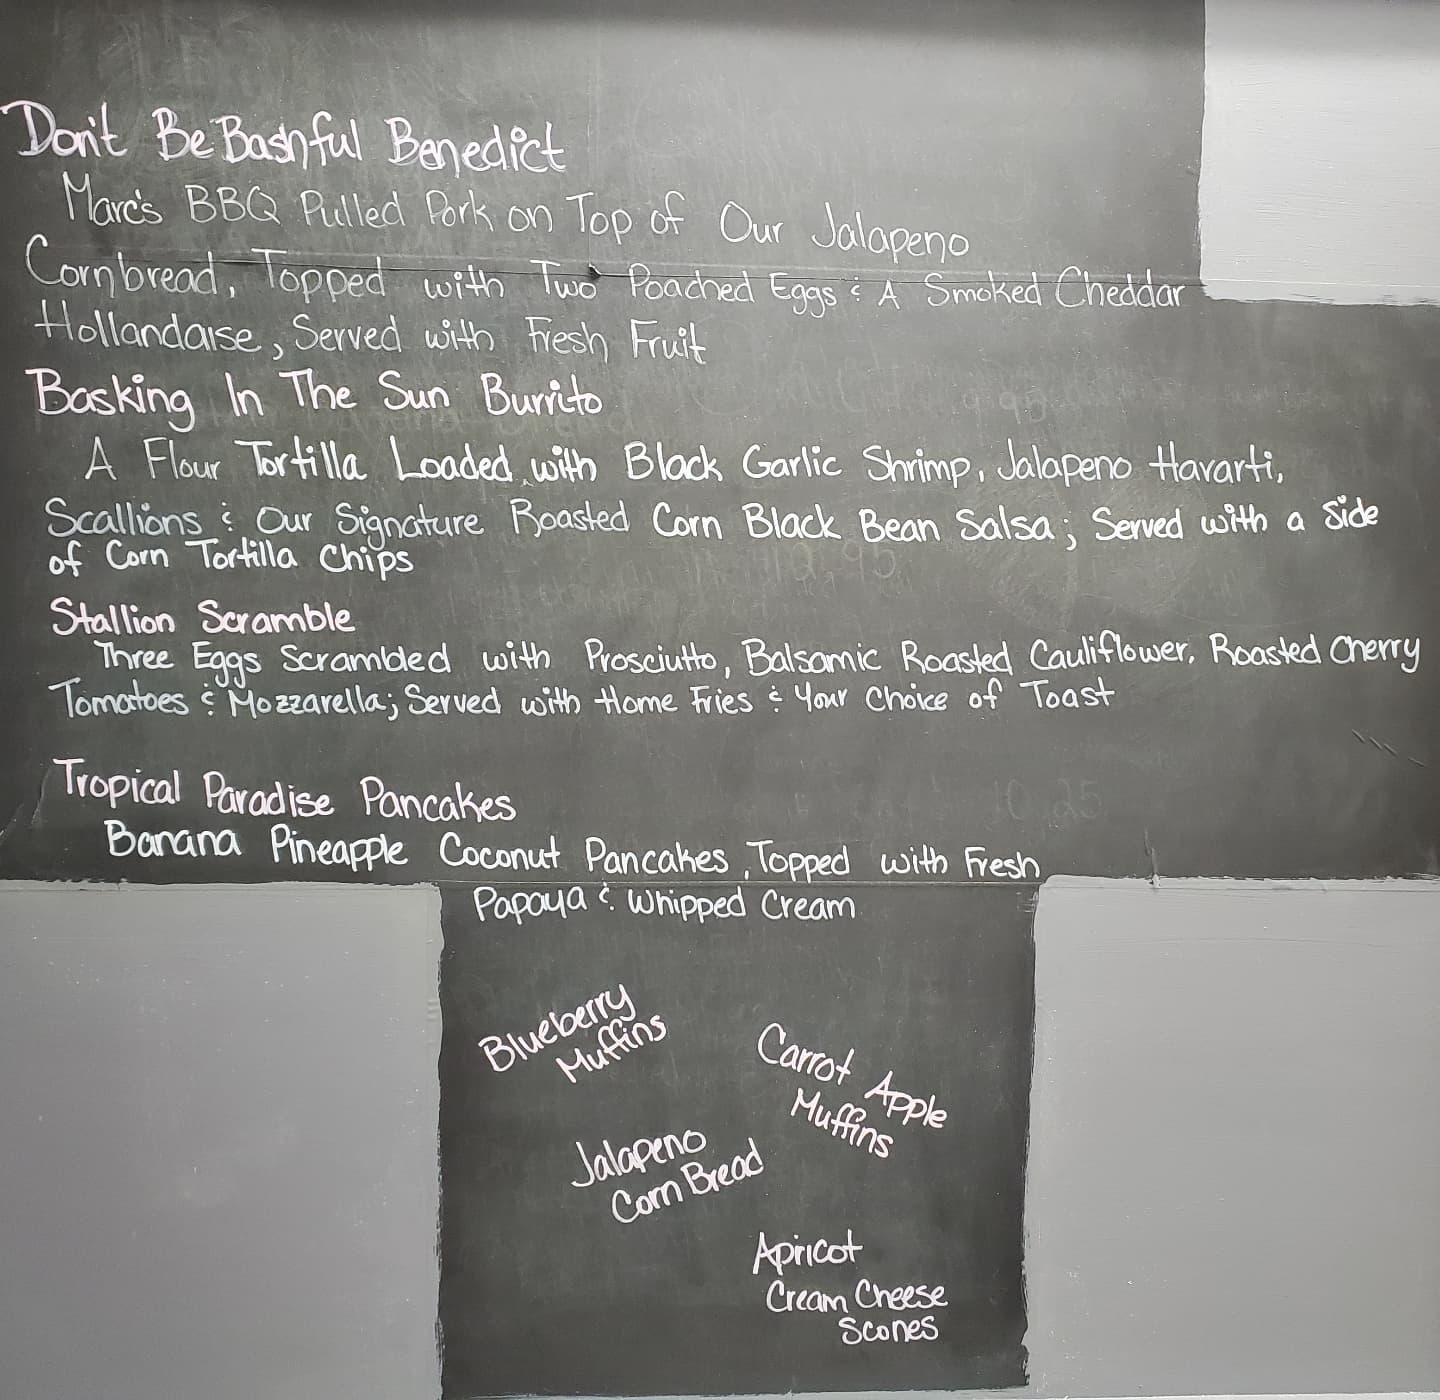 Don't Be Bashful Benedict
Marc's BBQ Pulled Pork on Top of Our Jalapeno
Cornbread, Topped with Two Poached Eggs & A Smoked Cheddar
Hollandaise, Served with Fresh Fruit
Basking In The Sun Burrito
A Flour Tortilla Loaded with Black Garlic Shrimp, Jalapeno Havarti,
Scallions & Our Signature Roasted Corn Black Bean Salsa; Served with a Side
of Corn Tortilla Chips
Stallion Scramble
Three Eggs Scrambled with Prosciutto, Balsamic Roasted Cauliflower, Roasted Cherry
Tomatoes & Mozzarella; Served with Home Fries & Your Choice of Toast
Tropical Paradise Pancakes
Banana Pineapple Coconut Pancakes, Topped with Fresh
Papaya & Whipped Cream
Blueberry
Muffins
Carrot Apple
Muffins
Jalapeno
Corn Bread
Apricot
Cream Cheese
Scones